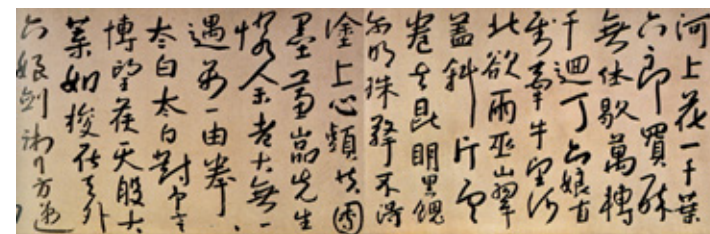 河上花一千葉
六郎買醉
無休歇萬轉
千迴丁六娘直
到牽牛望河
北欲雨巫山翠
蓋斜片雲
卷去昆明黑饋
爾明珠擎不得
塗上心頭共團
墨蕙嵒先生
憐余老大無一
遇万一由拳
太白太白對予言
博望侯天般大
葉如梭在天外
六娘劍術行方邁